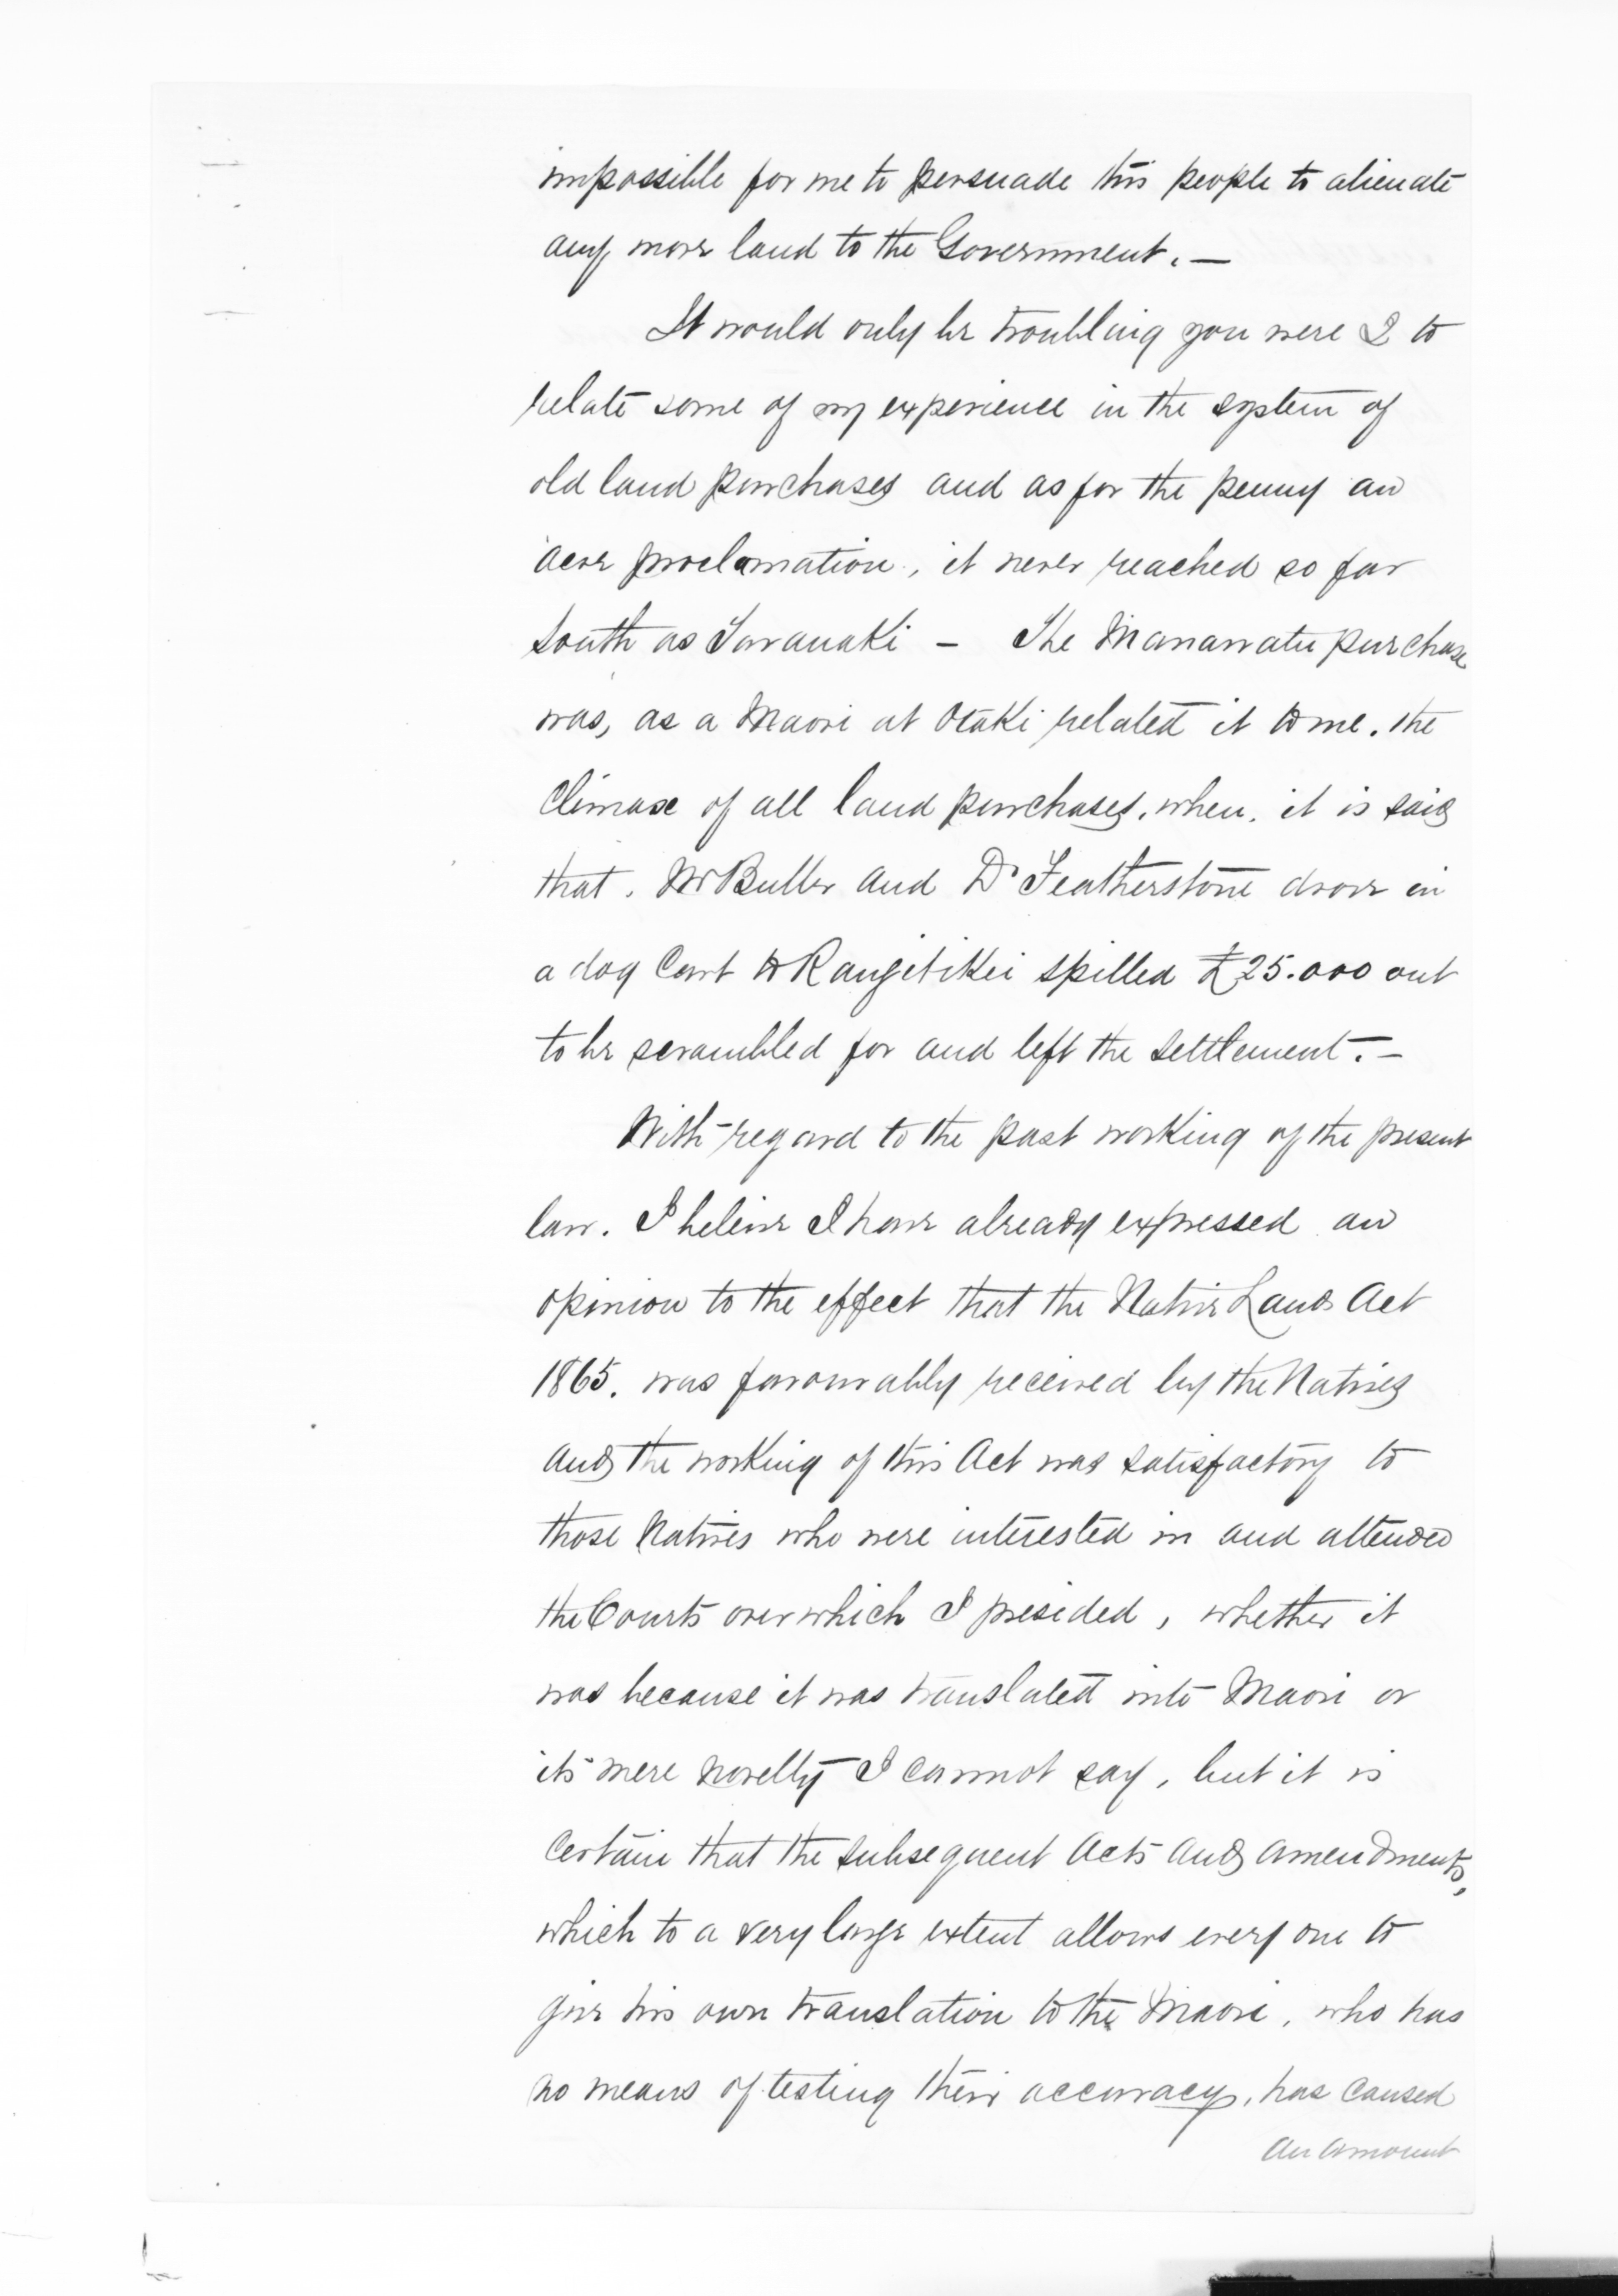 impossible for me to persuade this people to alienate
any more land to the Government. —
It would only be troubling you were I to
relate some of my experience in the system of
old land purchases and as for the penny an
acre proclamation, it never reached so far
South as Taranaki — The Manawatu purchase
was, as a Maori at Otaki related it to me. the
Climax of all land purchases. when, it is said
that. Mr Buller and Dr Featherstone drove in
a dog Cart to Rangitikei spilled £25.000 out
to be scrambled for and left the Settlement. —
With regard to the past working of the present
law. I believe I have already expressed an
opinion to the effect that the Native Lands Act
1865. was favourably received by the Natives
and the working of this Act was satisfactory to
those Natives who were interested in and attended
the Courts over which I presided, whether it
was because it was translated into Maori or
its mere novelty I cannot say, but it is
Certain that the subsequent Acts and amendments,
which to a very large extent allows every one to
give his own translation to the Maori, who has
no means of testing their accuracy, has caused
An amount